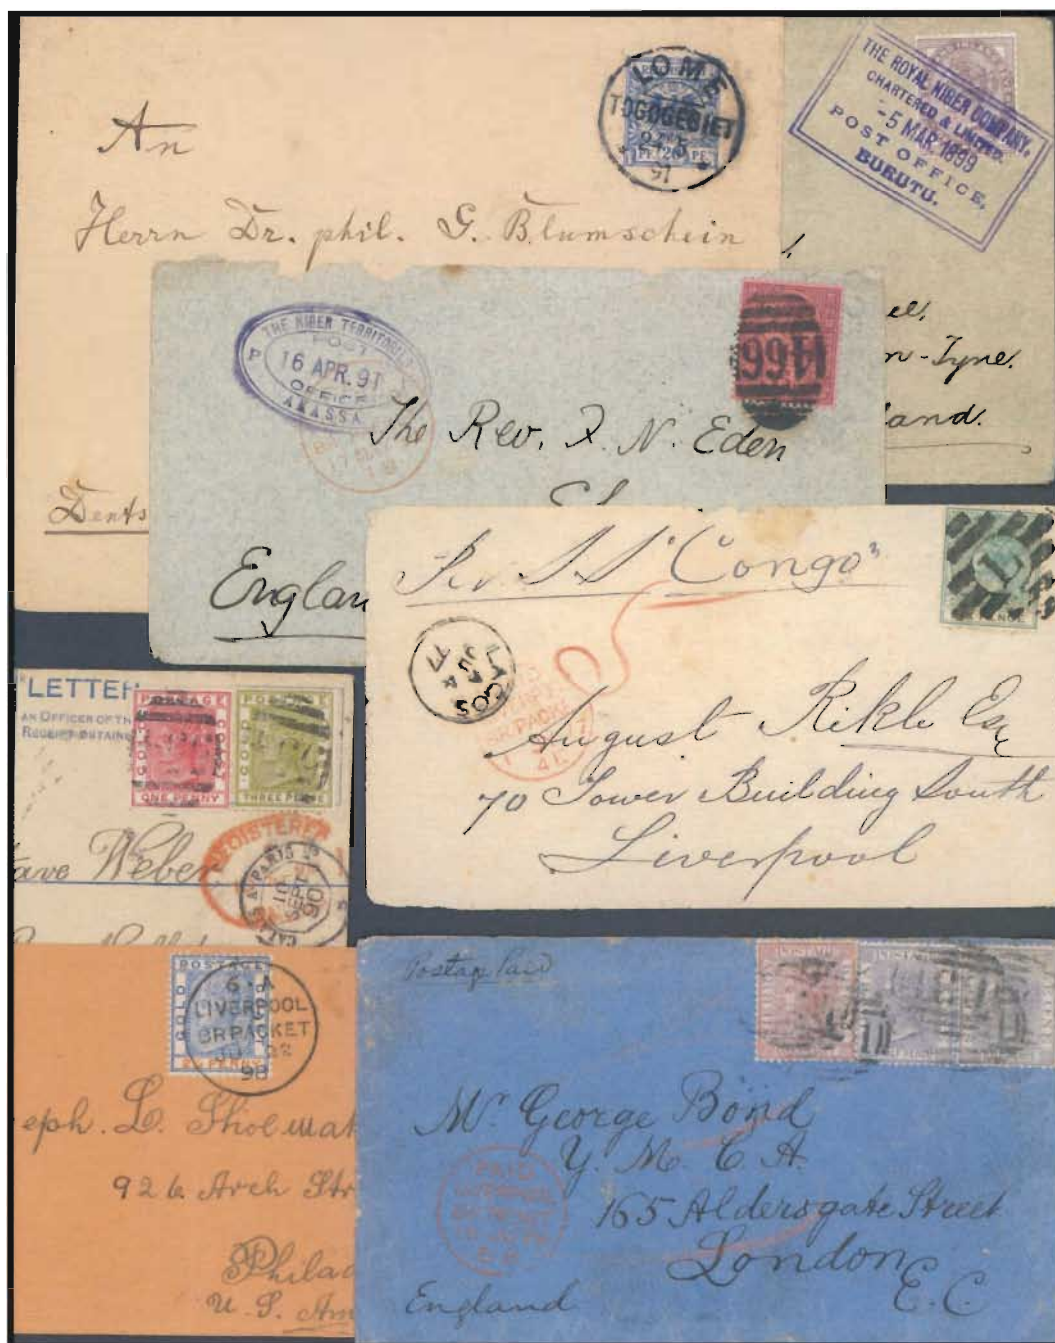 An
Herrn Dr. phil. G. Blumschein
LOME
TOGOGEBIET
24/5
PF 20 PF
THE ROYAL NIGER COMPANY,
CHARTERED & LIMITED.
-5 MAR. 1899
POST OFFICE,
BURUTU.
Tyne.
and.
THE NIGER TERRITORIES
POST
16 APR. 91
OFFICE
AKASSA
466
The Rev. F. N. Eden
Englan
Per SS "Congo"
LAGOS
77
L
August Rikli Esq
70 Tower Building South
Liverpool
"LETTER
AN OFFICER OF TH
RECEIPT OBTAINE
POSTAGE
GOLD
COAST
ONE PENNY
POSTAGE
GOLD
THREE PENCE
ave Weber
REGISTERED
CALAIS A PARIS
10
SEPT
90
POSTAGE
GOLD
PENNY
6.A
LIVERPOOL
BR PACKET
98
eph. L.
926 Arch Str
Philad
U.S. Am
Postage Paid
Mr George Bond
Y. M. C. A.
165 Aldersgate Street
London
E.C.
England
PAID
LIVERPOOL